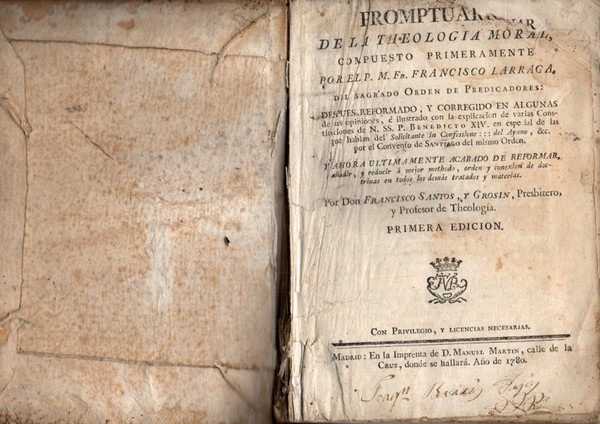 PROMPTUAR
DE LA THEOLOGIA MORAL,
COMPUESTO PRIMERAMENTE
POR EL P. M. Fr. FRANCISCO LARRAGA,
DEL SAGRADO ORDEN DE PREDICADORES:
DESPUES REFORMADO, Y CORREGIDO EN ALGUNAS
de sus opiniones, é ilustrado con la explicacion de varias Cons-
tituciones de N. SS. P. BENEDICTO XIV. en especial de las
que hablan del Solicitante in Confessione ::: del Ayuno, &c.
por el Convento de SANTIAGO del mismo Orden.
Y AHORA ULTIMAMENTE ACABADO DE REFORMAR,
añadir, y reducir á mejor methodo, orden y connexîon de doc-
trinas en todos los demás tratados y materias.
Por Don FRANCISCO SANTOS, Y GROSIN, Presbitero,
y Profesor de Theología.
PRIMERA EDICION.
CON PRIVILEGIO, Y LICENCIAS NECESARIAS.
MADRID: En la Imprenta de D. MANUEL MARTIN, calle de la
CRUZ, donde se hallará. Año de 1780.